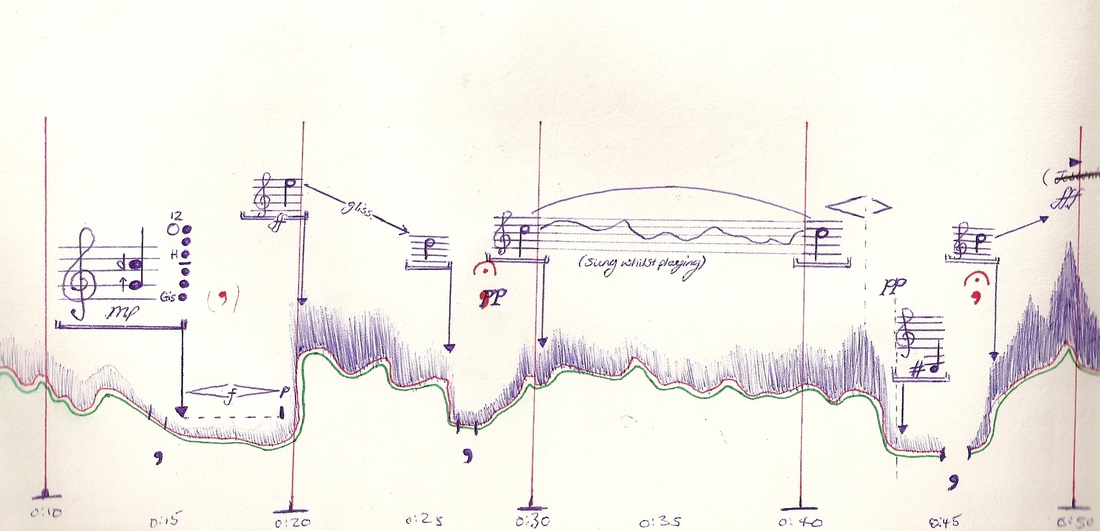 12
H
Gis
mp
f
p
ff
gliss.
pp
(sung whilst playing)
pp
#
fff
0:10
0:15
0:20
0:25
0:30
0:35
0:40
0:45
0:50